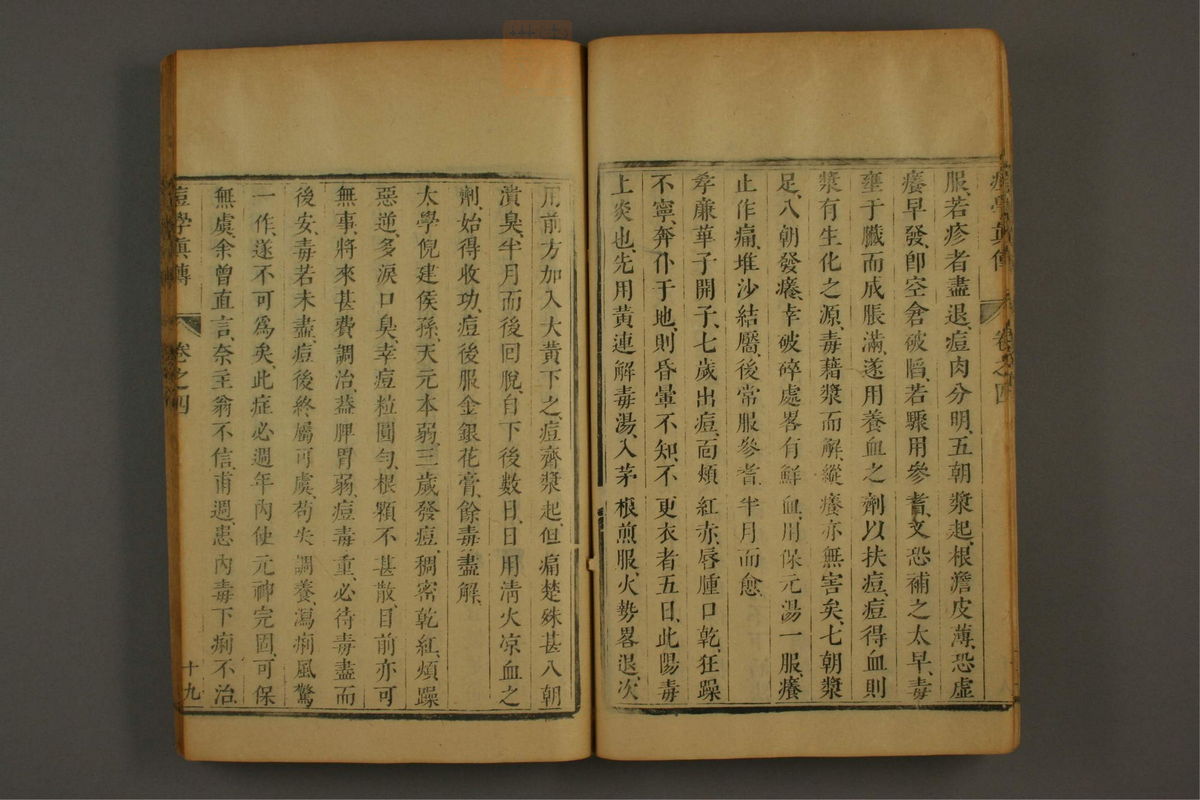 痘學眞傳 卷之四
服、若疹者盡退、痘肉分明、五朝漿起、根澹皮薄、恐虛
癢早發、卽空倉破䐃、若驟用參耆、又恐補之太早、毒
壅于臟而成脹滿、遂用養血之劑以扶痘、痘得血則
漿有生化之源、毒藉漿而解、縱癢亦無害矣、七朝漿
足、八朝發癢、幸破碎處畧有鮮血、用保元湯一服、癢
止作痛、堆沙結靨、後常服參耆、半月而愈
孝廉華子開子、七歲出痘、面頰紅赤、唇腫口乾、狂躁
不寧、奔仆于地、則昏暈不知、不更衣者五日、此陽毒
上炎也、先用黃連解毒湯、入茅根煎服、火勢畧退、次
用前方加入大黃下之、痘齊漿起、但痛楚殊甚、八朝
潰臭、半月而後回脫、自下後數日、日用清火凉血之
劑、始得收功、痘後服金銀花膏、餘毒盡解、
太學倪建侯孫、天元本弱、三歲發痘、稠密乾紅、煩躁
惡逆、多淚口臭、幸痘粒圓勻、根顆不甚散、目前亦可
無事、將來甚費調治、葢脾胃弱、痘毒重、必待毒盡而
後安、毒若未盡、痘後終屬可虞、苟失調養、瀉痢風驚
一作、遂不可爲矣、此症必週年內使元神完固、可保
無虞、余曾直言、奈主翁不信、甫週、患內毒下痢不治
痘學眞傳 卷之四 十九